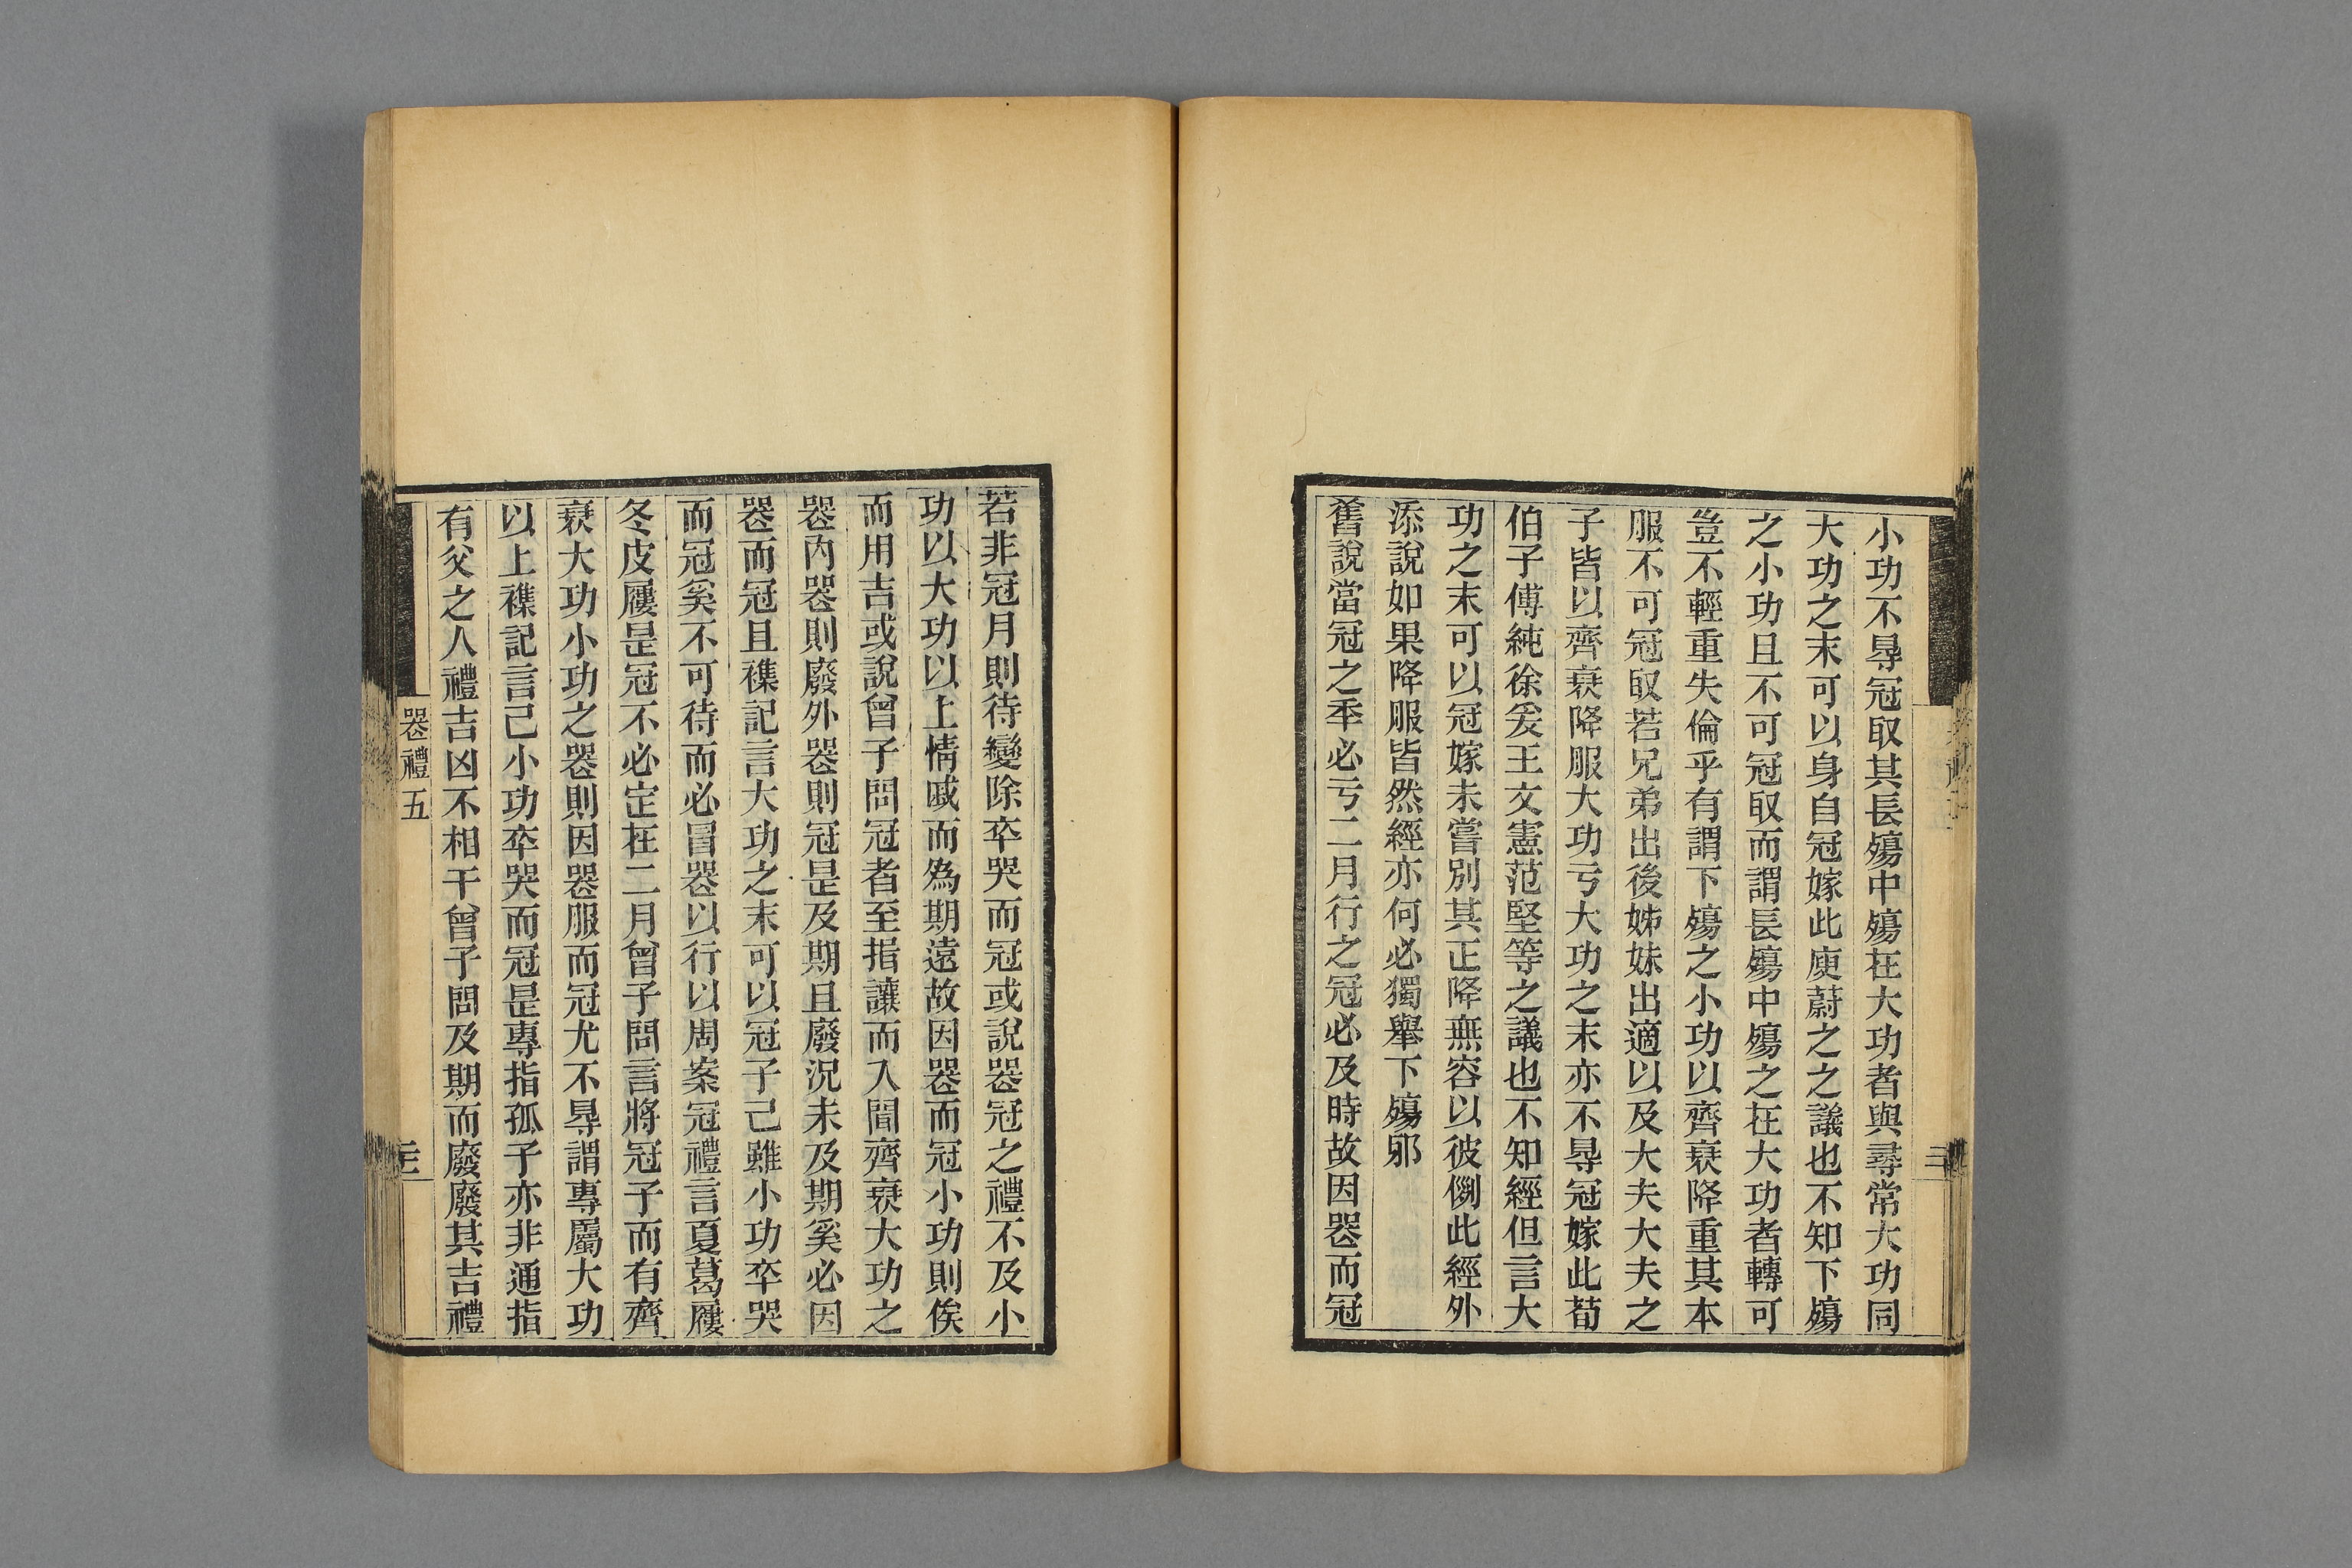 小功不㝵冠取其長殤中殤在大功者與尋常大功同
大功之末可以身自冠嫁此庾蔚之之議也不知下殤
之小功且不可冠取而謂長殤中殤之在大功者轉可
豈不輕重失倫乎有謂下殤之小功以齊衰降重其本
服不可冠取若兄弟出後姊妹出適以及大夫大夫之
子皆以齊衰降服大功亏大功之末亦不㝵冠嫁此荀
伯子傅純徐爰王文憲范堅等之議也不知經但言大
功之末可以冠嫁未嘗別其正降無容以彼側此經外
添說如果降服皆然經亦何必獨舉下殤邪
舊說當冠之秊必亏二月行之冠必及時故因器而冠
若非冠月則待變除卒哭而冠或說器冠之禮不及小
功以大功以上情戚而為期遠故因器而冠小功則俟
而用吉或說曾子問冠者至指讓而入聞齊衰大功之
器內器則廢外器則冠是及期且廢況未及期奚必因
器而冠且襍記言大功之末可以冠子己雖小功卒哭
而冠奚不可待而必冒器以行以周案冠禮言夏葛屨
冬皮屨是冠不必定在二月曾子問言將冠子而有齊
衰大功小功之器則因器服而冠尤不㝵謂專屬大功
以上襍記言己小功卒哭而冠是專指孤子亦非通指
有父之人禮吉凶不相干曾子問及期而廢廢其吉禮
器禮五